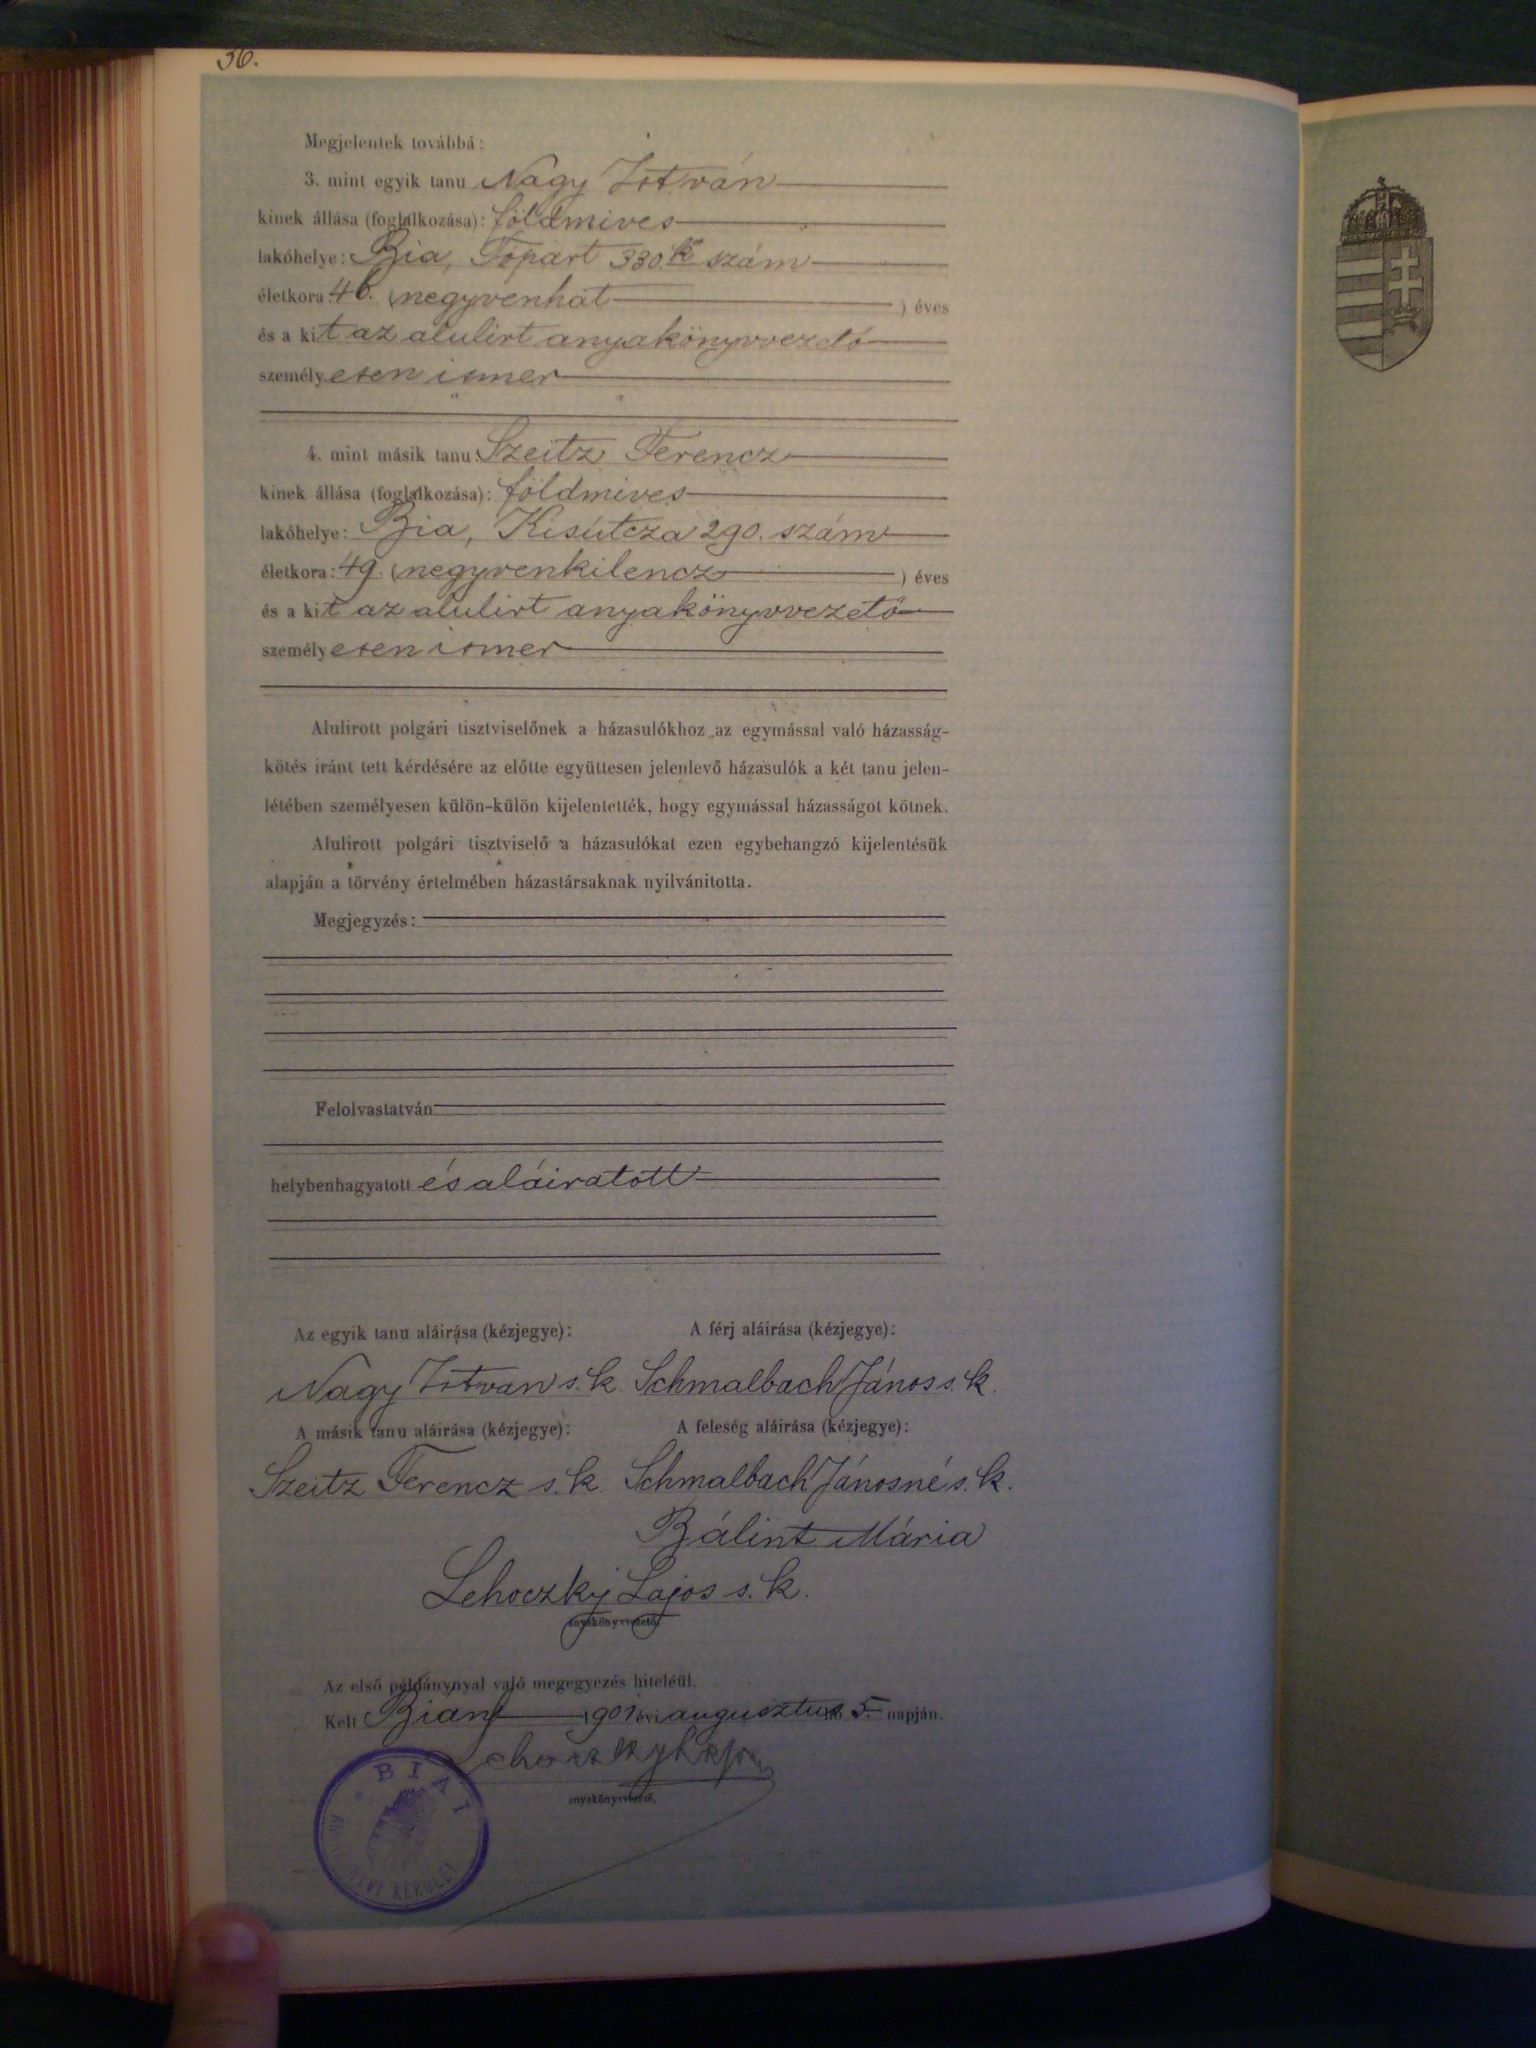 36.
Megjelentek továbbá:
3. mint egyik tanu Nagy István
kinek állása (foglalkozása): földmives
lakóhelye: Bia, Fopart 330. k szám
életkora: 46. (negyvenhat ) éves
és a kit az alulirt anyakönyvvezető
személyesen ismer
4. mint másik tanu: Szeitz Ferencz
kinek állása (foglalkozása): földmives
lakóhelye: Bia, Kisútcza 290. szám
életkora: 49. (negyvenkilencz ) éves
és a kit az alulirt anyakönyvvezető
személyesen ismer
Alulirott polgári tisztviselőnek a házasulókhoz az egymással való házasság-
kötés iránt tett kérdésére az előtte együttesen jelenlevő házasulók a két tanu jelen-
létében személyesen külön-külön kijelentették, hogy egymással házasságot kötnek.
Alulirott polgári tisztviselő a házasulókat ezen egybehangzó kijelentésük
alapján a törvény értelmében házastársaknak nyilvánitotta.
Megjegyzés:
Felolvastatván
helybenhagyatott és aláiratott
Az egyik tanu aláirása (kézjegye): A férj aláirása (kézjegye):
Nagy Istvan s. k. Schmalbach János s. k.
A másik tanu aláirása (kézjegye): A feleség aláirása (kézjegye):
Szeitz Ferencz s. k. Schmalbach Jánosné s. k.
Bálint Mária
Lehoczky Lajos s. k.
anyakönyvvezető.
Az első példánynyal való megegyezés hiteléül.
Kelt Bian 1901 évi augusztus hó 5. napján.
Lehoczky Lajos
anyakönyvvezető.
BIAI
KERÜLET